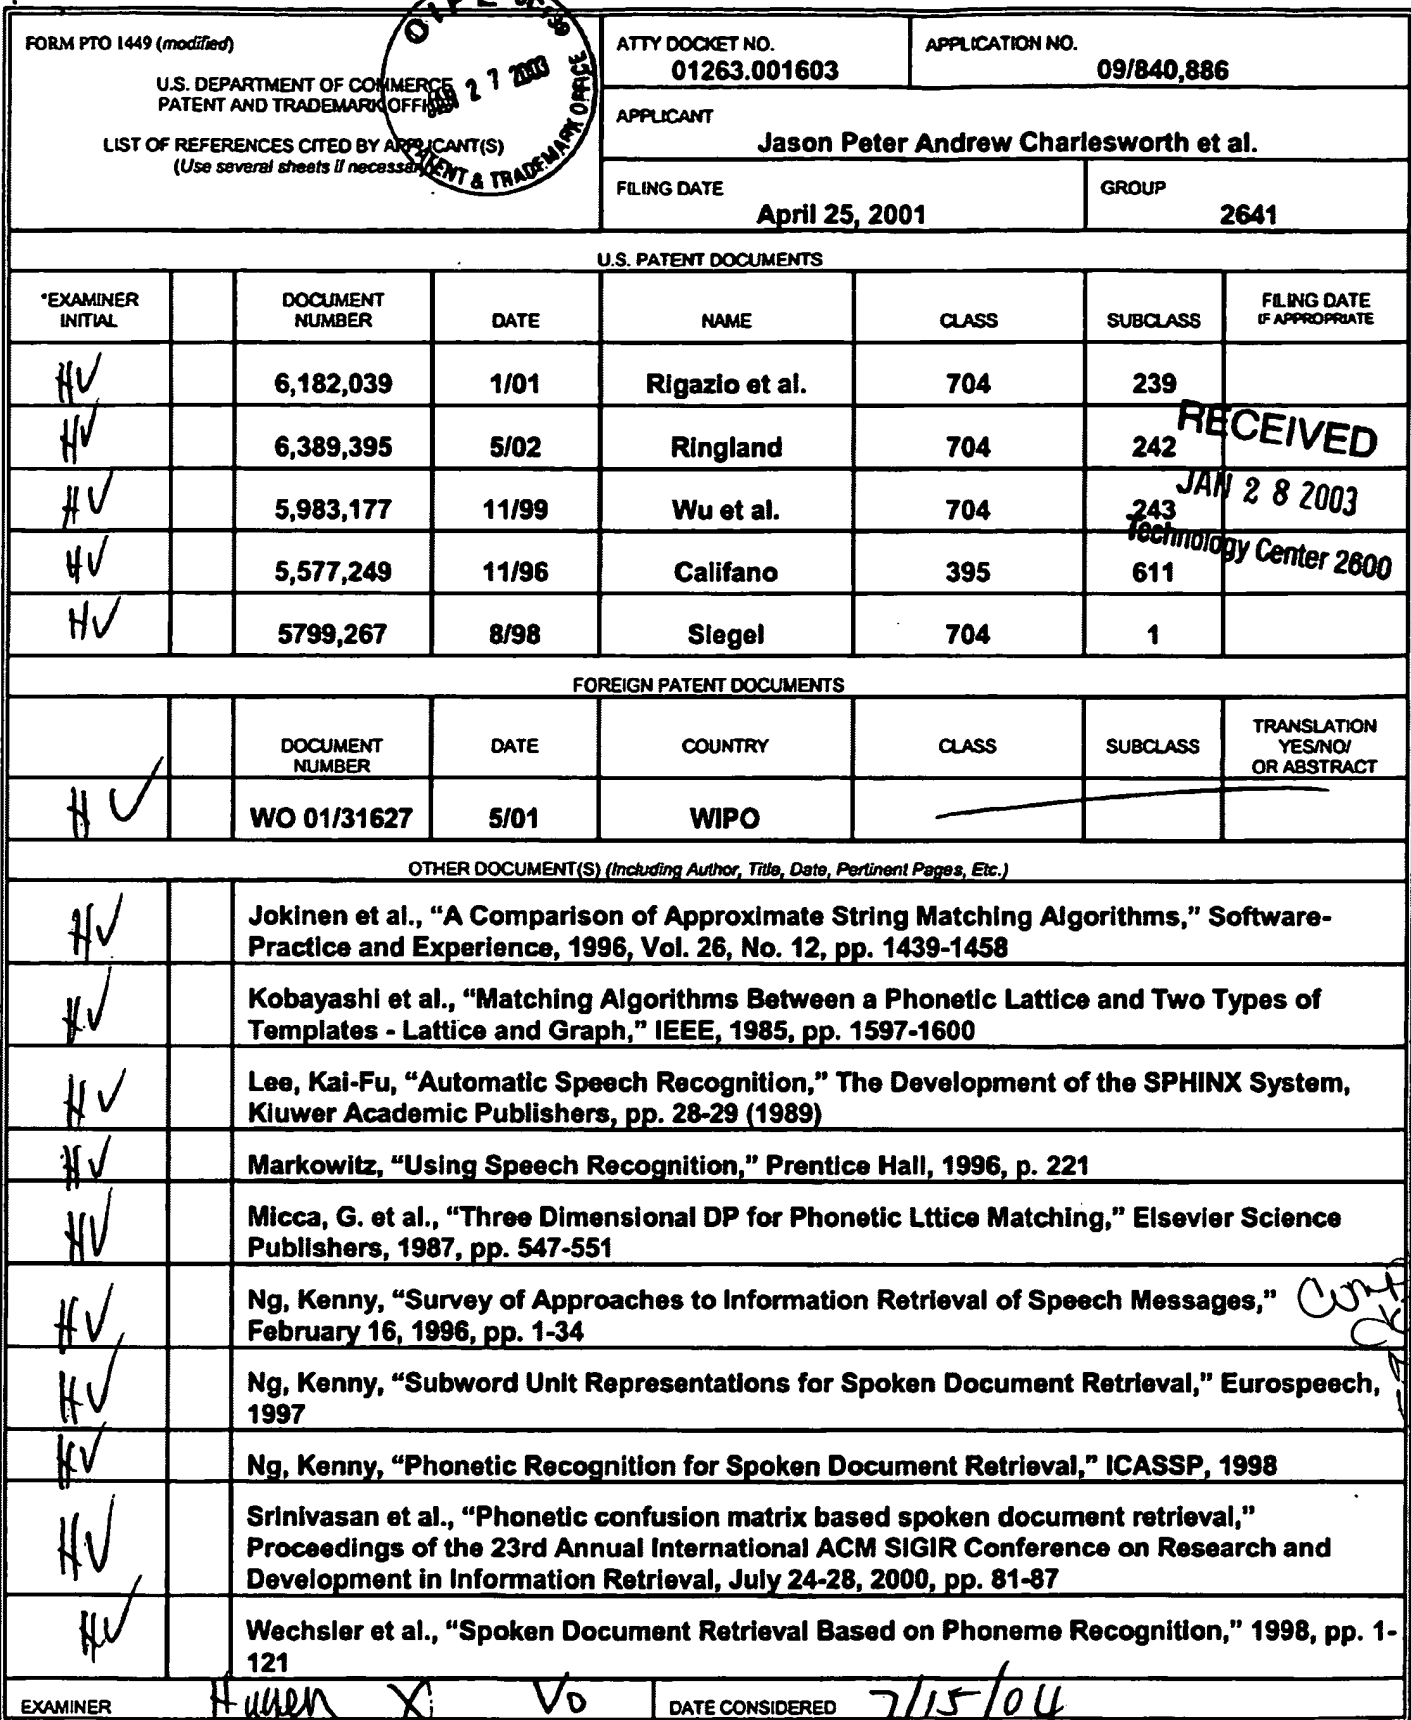 FORM PTO 1449 (modified)
U.S. DEPARTMENT OF COMMERCE
PATENT AND TRADEMARK OFFICE
LIST OF REFERENCES CITED BY APPLICANT(S)
(Use several sheets if necessary)
OIPE
27 2003
PATENT & TRADEMARK OFFICE
ATTY DOCKET NO.
01263.001603
APPLICATION NO.
09/840,886
APPLICANT
Jason Peter Andrew Charlesworth et al.
FILING DATE
April 25, 2001
GROUP
2641
U.S. PATENT DOCUMENTS
*EXAMINER INITIAL DOCUMENT NUMBER DATE NAME CLASS SUBCLASS FILING DATE IF APPROPRIATE
HV 6,182,039 1/01 Rigazio et al. 704 239
HV 6,389,395 5/02 Ringland 704 242
HV 5,983,177 11/99 Wu et al. 704 243
HV 5,577,249 11/96 Califano 395 611
HV 5799,267 8/98 Siegel 704 1
RECEIVED
JAN 28 2003
Technology Center 2600
FOREIGN PATENT DOCUMENTS
DOCUMENT NUMBER DATE COUNTRY CLASS SUBCLASS TRANSLATION YES/NO/ OR ABSTRACT
HV WO 01/31627 5/01 WIPO
OTHER DOCUMENT(S) (Including Author, Title, Date, Pertinent Pages, Etc.)
HV Jokinen et al., “A Comparison of Approximate String Matching Algorithms,” Software-
Practice and Experience, 1996, Vol. 26, No. 12, pp. 1439-1458
HV Kobayashi et al., “Matching Algorithms Between a Phonetic Lattice and Two Types of
Templates - Lattice and Graph,” IEEE, 1985, pp. 1597-1600
HV Lee, Kai-Fu, “Automatic Speech Recognition,” The Development of the SPHINX System,
Kluwer Academic Publishers, pp. 28-29 (1989)
HV Markowitz, “Using Speech Recognition,” Prentice Hall, 1996, p. 221
HV Micca, G. et al., “Three Dimensional DP for Phonetic Lttice Matching,” Elsevier Science
Publishers, 1987, pp. 547-551
HV Ng, Kenny, “Survey of Approaches to Information Retrieval of Speech Messages,”
February 16, 1996, pp. 1-34
HV Ng, Kenny, “Subword Unit Representations for Spoken Document Retrieval,” Eurospeech,
1997
HV Ng, Kenny, “Phonetic Recognition for Spoken Document Retrieval,” ICASSP, 1998
HV Srinivasan et al., “Phonetic confusion matrix based spoken document retrieval,”
Proceedings of the 23rd Annual International ACM SIGIR Conference on Research and
Development in Information Retrieval, July 24-28, 2000, pp. 81-87
HV Wechsler et al., “Spoken Document Retrieval Based on Phoneme Recognition,” 1998, pp. 1-
121
EXAMINER Huyen X Vo DATE CONSIDERED 7/15/04